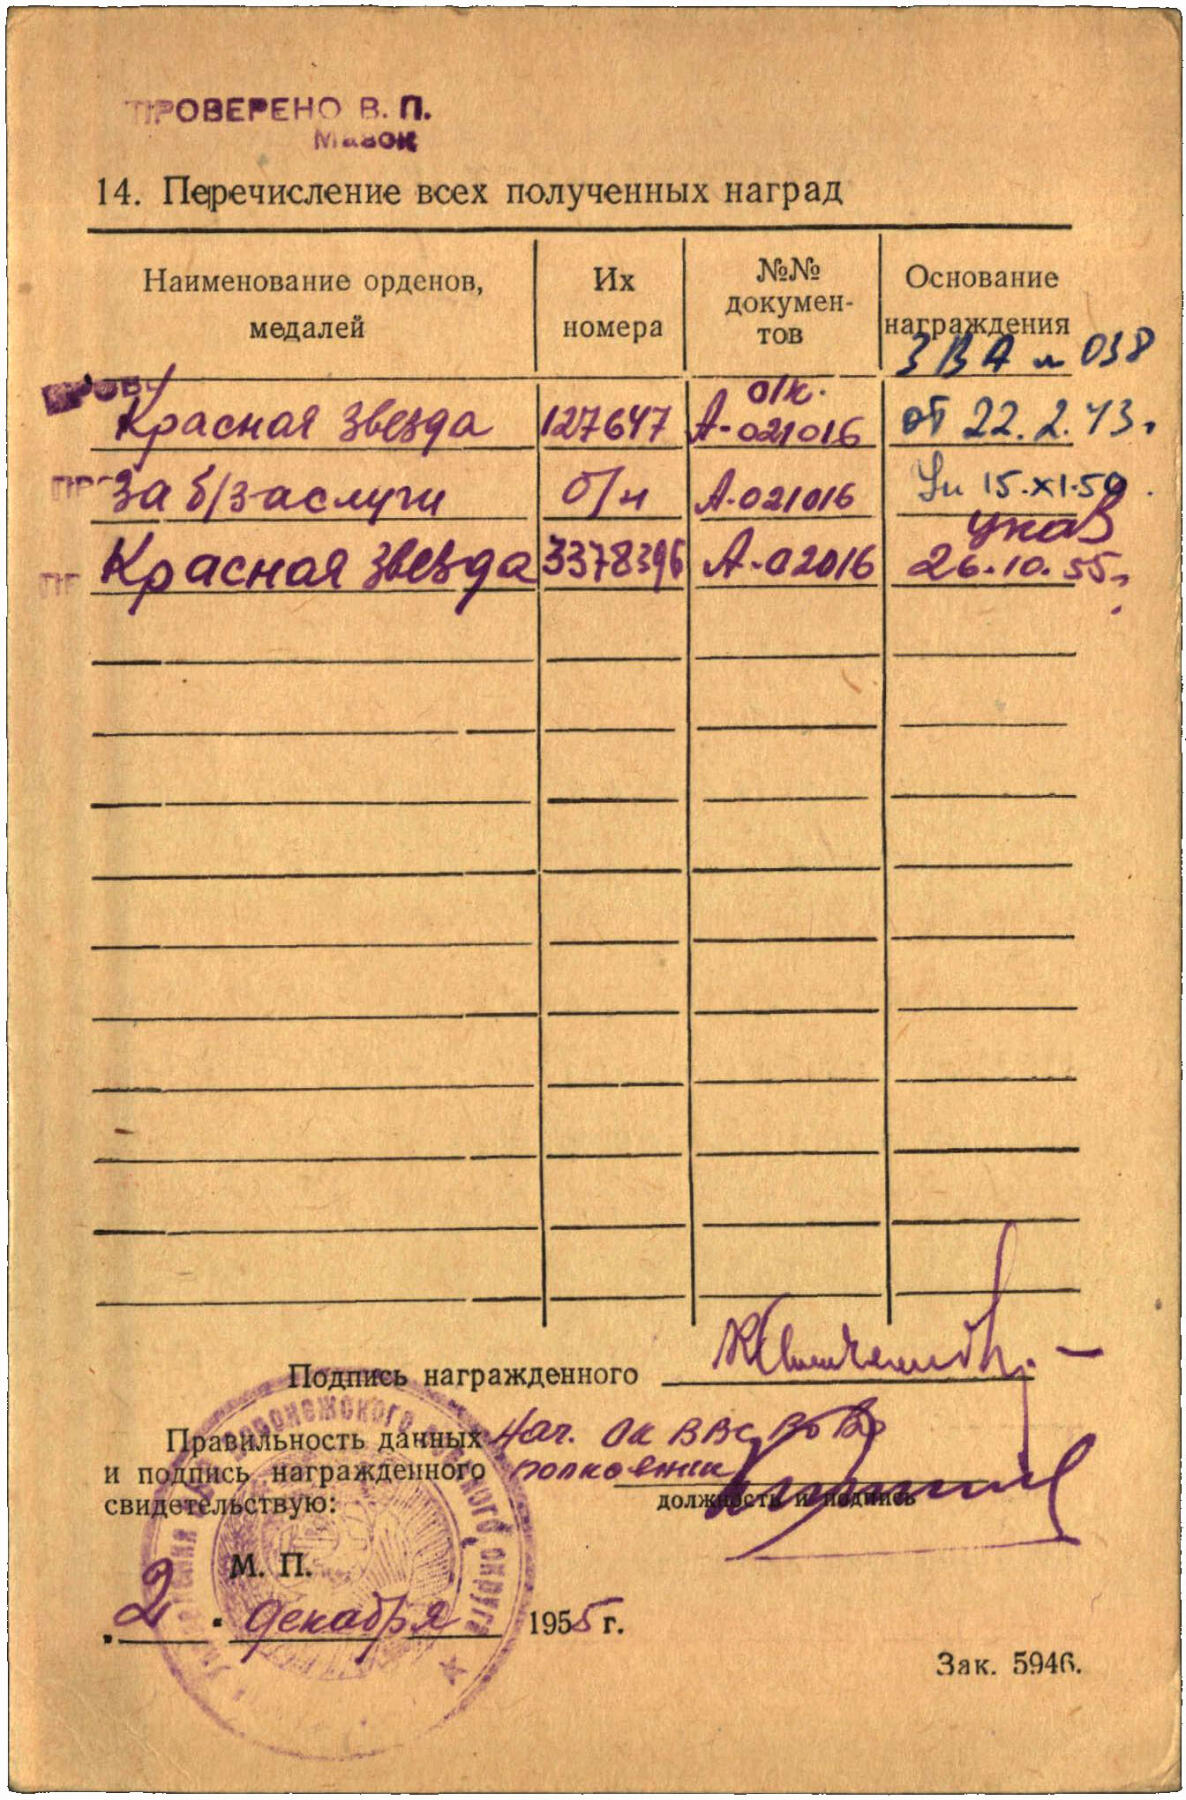 ПРОВЕРЕНО В. П.
Мазок
14. Перечисление всех полученных наград
Наименование орденов, медалей
Их номера
№№ докумен-
тов
Основание награждения
ЗВА № 038
Красная звезда 127647 о/к. А-021016 от 22.2.43г.
За б/заслуги б/н А-021016 Ук 15.XI.50.
указ
Красная звезда 3378396 А-02016 26.10.55г.
Подпись награжденного
Правильность данных Нач. Ок ВВС ВоВо
и подпись награжденного полковник
свидетельствую: должность и подпись
М. П.
2 декабря 1955 г.
Зак. 5946.